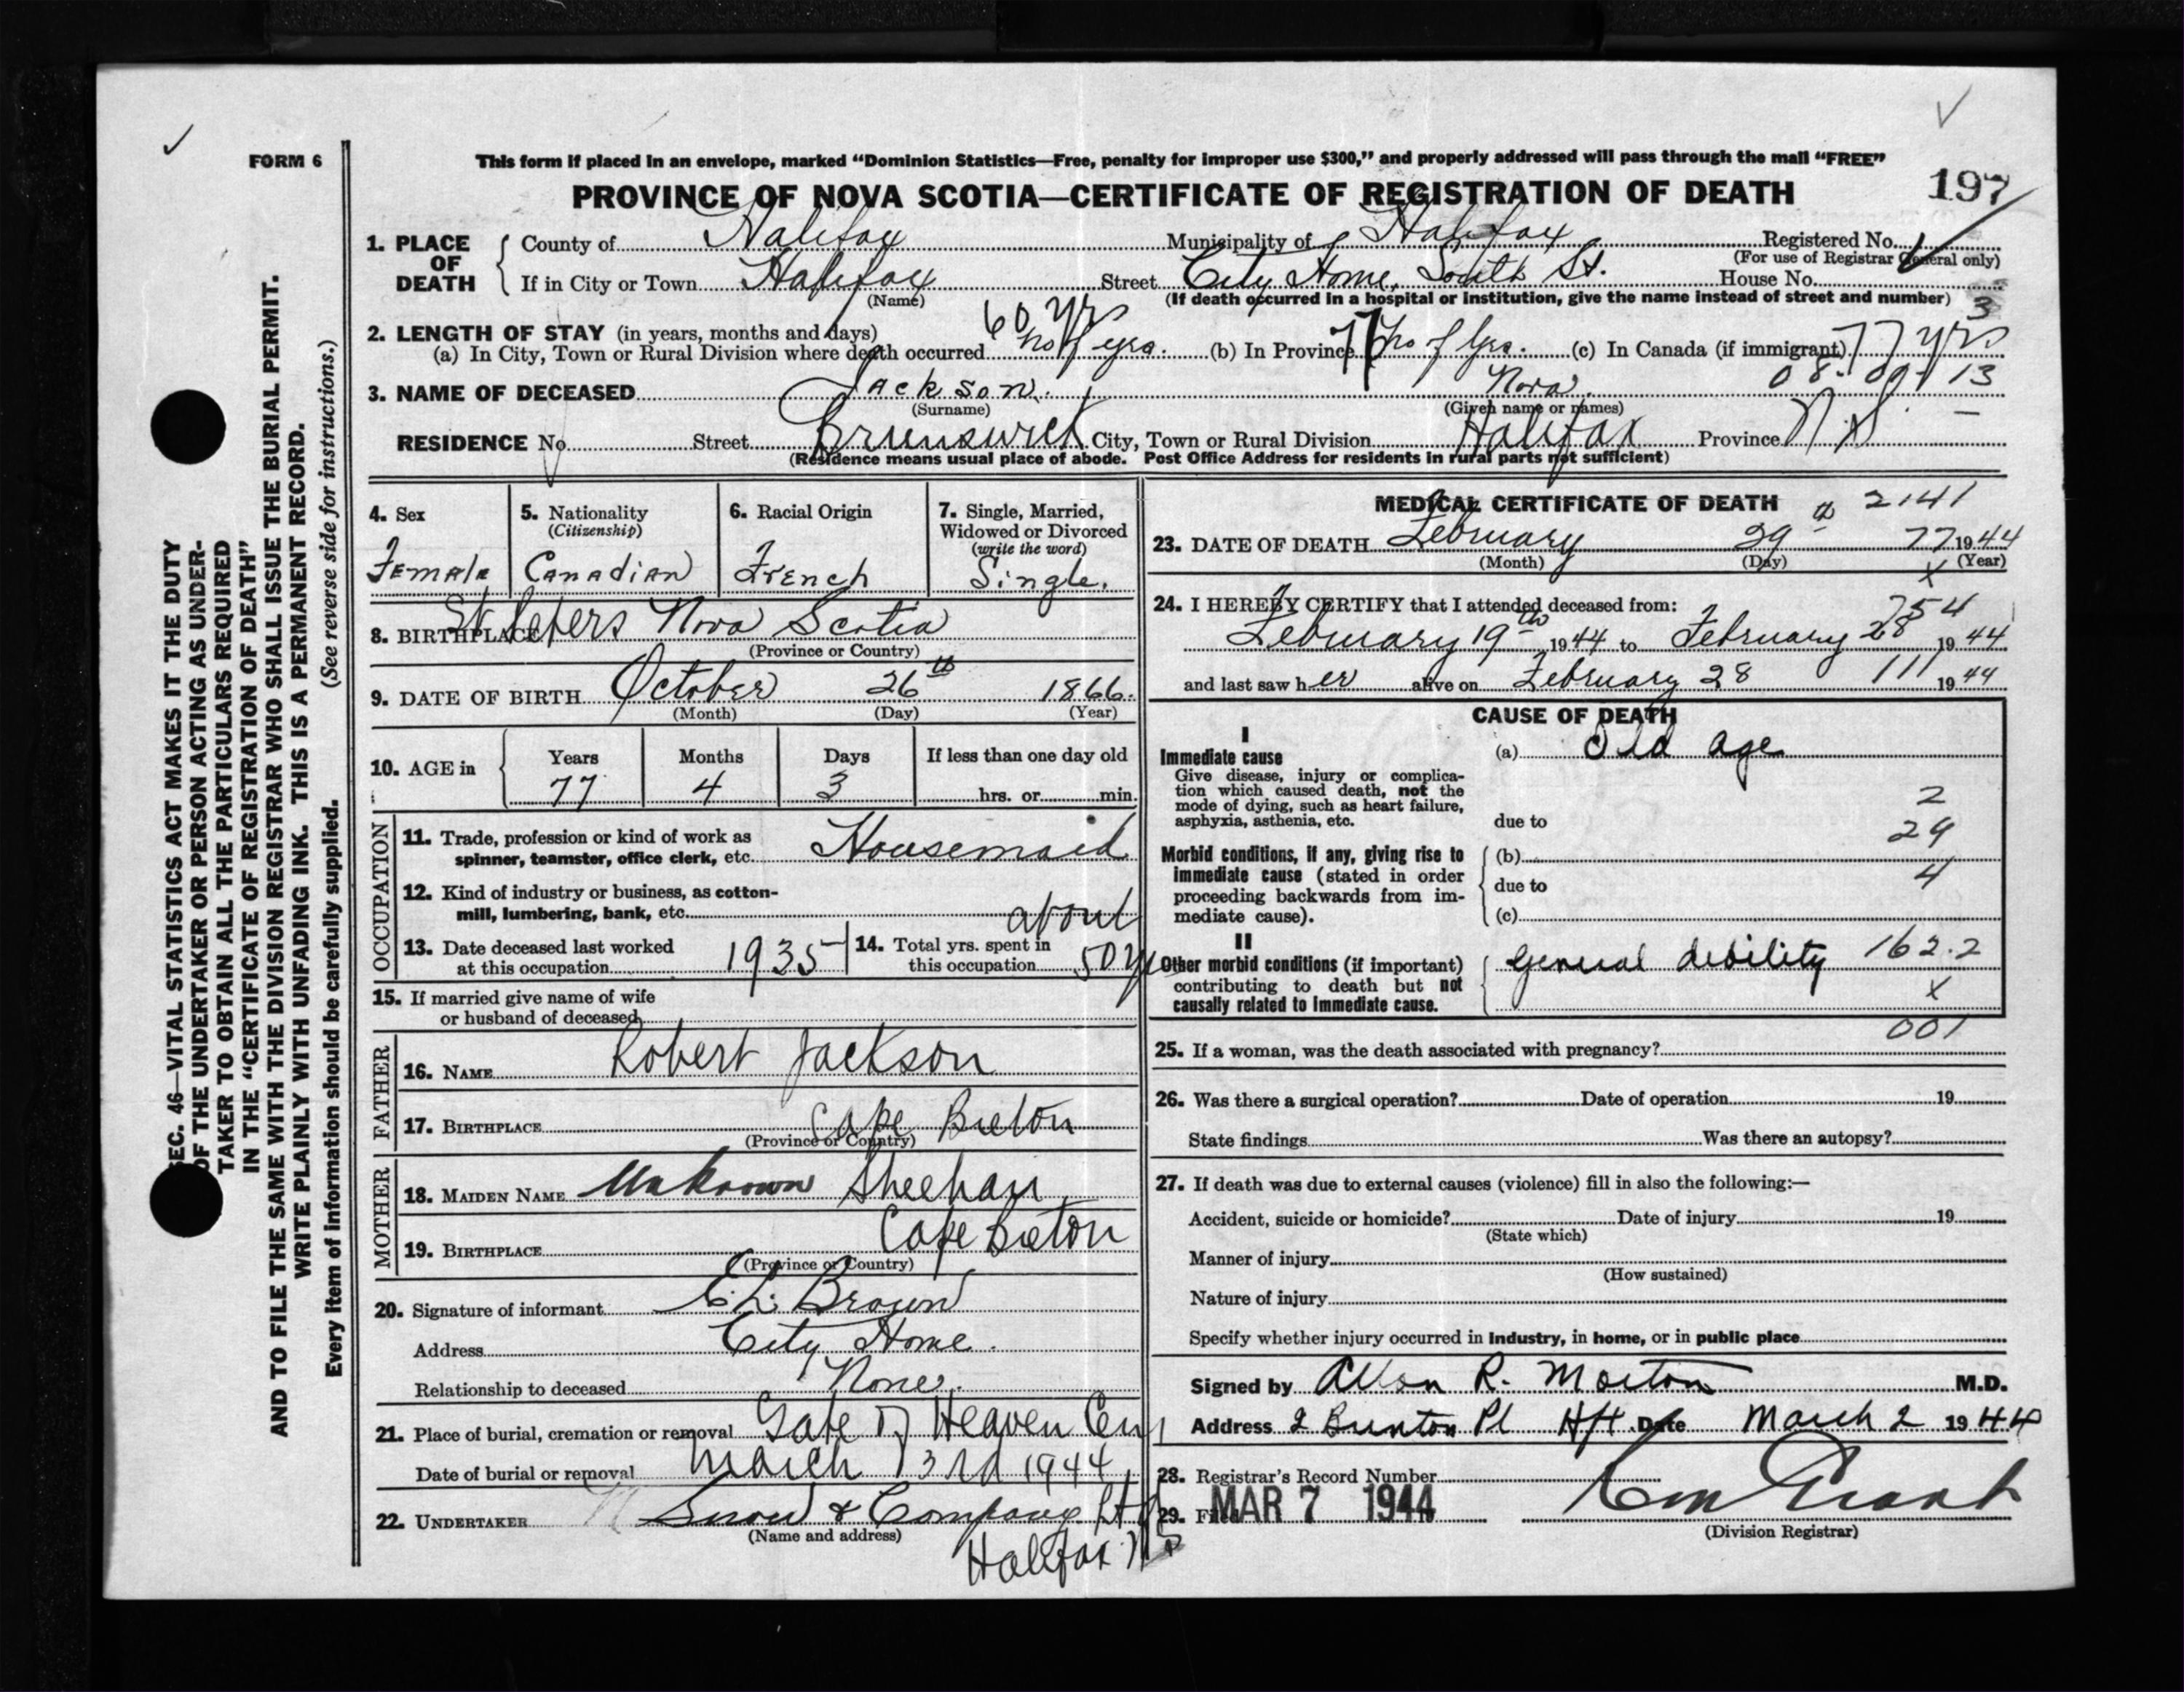 FORM 6
This form if placed in an envelope, marked “Dominion Statistics—Free, penalty for improper use $300,” and properly addressed will pass through the mail “FREE”
PROVINCE OF NOVA SCOTIA—CERTIFICATE OF REGISTRATION OF DEATH
197
1. PLACE OF DEATH
County of Halifax Municipality of Halifax Registered No.
(For use of Registrar General only)
If in City or Town Halifax Street City Home, South St. House No.
(Name) (If death occurred in a hospital or institution, give the name instead of street and number) 3
2. LENGTH OF STAY (in years, months and days) 60 yrs
(a) In City, Town or Rural Division where death occurred no of yrs. (b) In Province 77 no of yrs. (c) In Canada (if immigrant) 77 yrs
08-09-13
3. NAME OF DECEASED Jackson. Nora.
(Surname) (Given name or names)
RESIDENCE No. Street Brunswick City, Town or Rural Division Halifax Province N.S.
(Residence means usual place of abode. Post Office Address for residents in rural parts not sufficient)
4. Sex
Female
5. Nationality
(Citizenship)
Canadian
6. Racial Origin
French
7. Single, Married,
Widowed or Divorced
(write the word)
Single.
8. BIRTHPLACE St Peters Nova Scotia
(Province or Country)
9. DATE OF BIRTH October 26th 1866.
(Month) (Day) (Year)
10. AGE in
Years Months Days If less than one day old
77 4 3 hrs. or min.
OCCUPATION
11. Trade, profession or kind of work as
spinner, teamster, office clerk, etc. Housemaid
12. Kind of industry or business, as cotton-
mill, lumbering, bank, etc.
about
13. Date deceased last worked
at this occupation 1935
14. Total yrs. spent in
this occupation 50 yrs
15. If married give name of wife
or husband of deceased
FATHER
16. NAME Robert Jackson
17. BIRTHPLACE Cape Breton
(Province or Country)
MOTHER
18. MAIDEN NAME Unknown Sheehan
19. BIRTHPLACE Cape Breton
(Province or Country)
20. Signature of informant E. L. Brown
Address City Home.
Relationship to deceased None.
21. Place of burial, cremation or removal Gate of Heaven Cem
Date of burial or removal March 3rd 1944
22. UNDERTAKER Snow & Company Ltd
(Name and address)
Halifax NS
MEDICAL CERTIFICATE OF DEATH
2141
23. DATE OF DEATH February 29th 77 1944
(Month) (Day) (Year)
x
24. I HEREBY CERTIFY that I attended deceased from:
754
February 19th 1944 to February 28 1944
and last saw her alive on February 28 111 1944
CAUSE OF DEATH
I
Immediate cause
Give disease, injury or complica-
tion which caused death, not the
mode of dying, such as heart failure,
asphyxia, asthenia, etc.
(a) Old age
2
due to 29
Morbid conditions, if any, giving rise to
immediate cause (stated in order
proceeding backwards from im-
mediate cause).
(b)
due to 4
(c)
II
Other morbid conditions (if important)
contributing to death but not
causally related to immediate cause.
General debility 162.2
x
001
25. If a woman, was the death associated with pregnancy?
26. Was there a surgical operation? Date of operation 19
State findings Was there an autopsy?
27. If death was due to external causes (violence) fill in also the following:—
Accident, suicide or homicide? Date of injury 19
(State which)
Manner of injury
(How sustained)
Nature of injury
Specify whether injury occurred in industry, in home, or in public place
Signed by Allan R. Morton M.D.
Address 2 Brenton Pl Hfx Date March 2 1944
28. Registrar's Record Number
29. MAR 7 1944
(Division Registrar)
SEC. 46—VITAL STATISTICS ACT MAKES IT THE DUTY
OF THE UNDERTAKER OR PERSON ACTING AS UNDER-
TAKER TO OBTAIN ALL THE PARTICULARS REQUIRED
IN THE “CERTIFICATE OF REGISTRATION OF DEATH”
AND TO FILE THE SAME WITH THE DIVISION REGISTRAR WHO SHALL ISSUE THE BURIAL PERMIT.
WRITE PLAINLY WITH UNFADING INK. THIS IS A PERMANENT RECORD.
Every item of information should be carefully supplied. (See reverse side for instructions.)